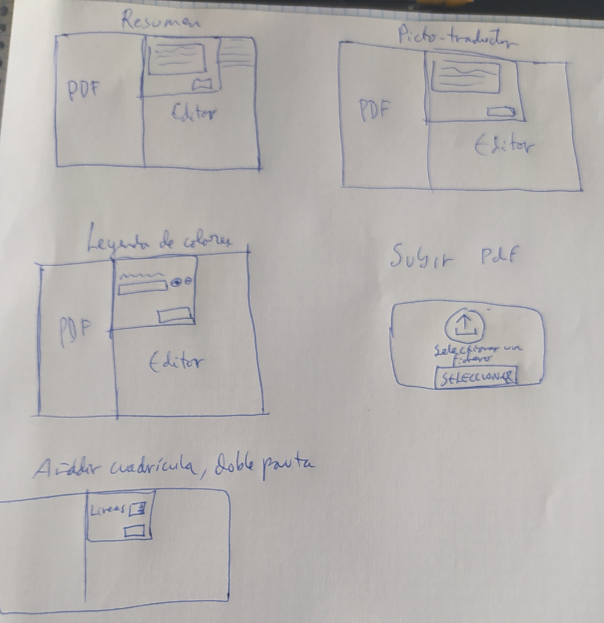 Resumen
PDF
Editor
Picto-traductor
PDF
Editor
Leyenda de colores
PDF
Editor
Subir PDF
Seleccionar un
fichero
SELECCIONAR
Añadir cuadrícula, doble pauta
Líneas